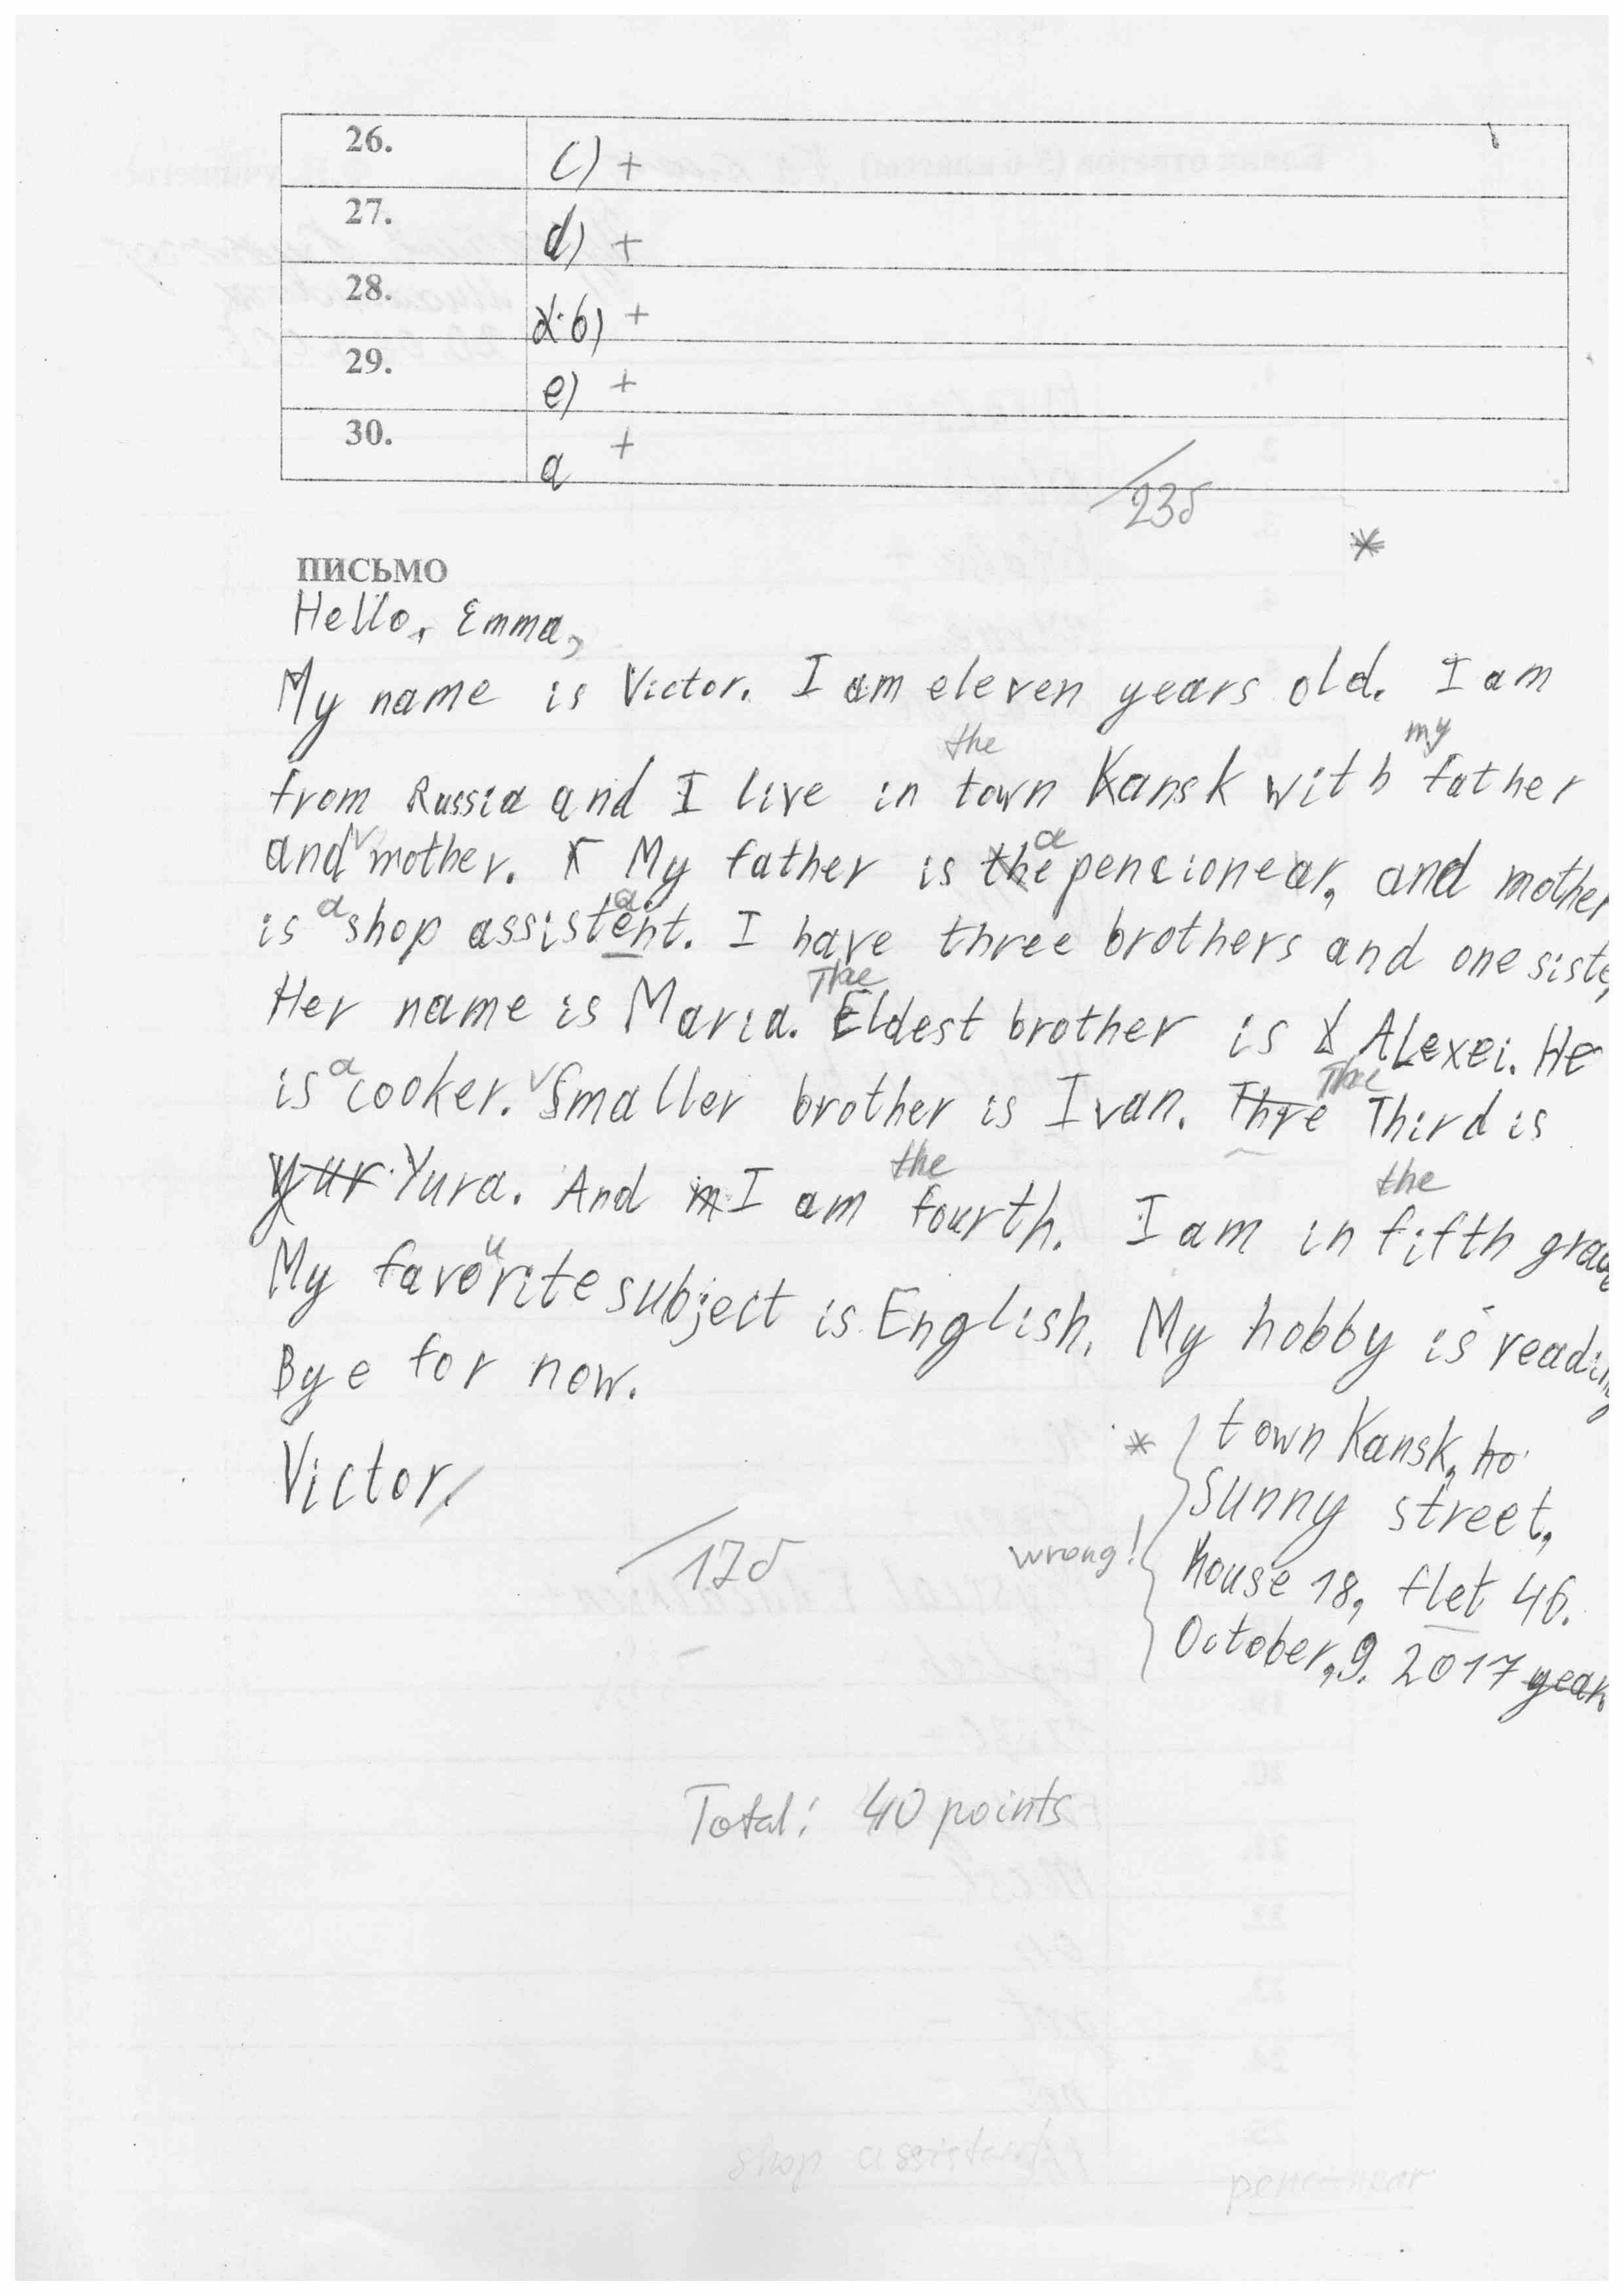 26. c) +
27. d) +
28. b) +
29. e) +
30. a +
/23δ
*
ПИСЬМО
Hello, Emma,
My name is Victor. I am eleven years old. I am
the my
from Russia and I live in town Kansk with father
and mother. My father is the a pencionear, and mother
is a shop assistent. a I have three brothers and one siste
The
Her name is Maria. Eldest brother is Alexei. He
is a cooker. Smaller brother is Ivan. Thre The Third is
yur Yura. And I am the fourth. I am in the fifth grade
My favorite u subject is English. My hobby is reading
Bye for now.
Victor.
* town Kansk, ho
Sunny street,
wrong! house 18, flet 46.
October, 9. 2017 year.
/17δ
Total: 40 points
shop assistant
pencionear